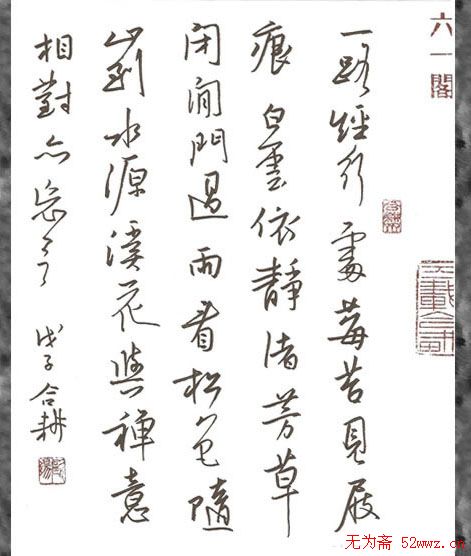 六一閣
一路經行處莓苔見屐
痕白雲依靜渚芳草
閉閒門過雨看松色隨
山到水源溪花與禪意
相對亦忘言
戊子合耕
无为斋 52wwz.cn